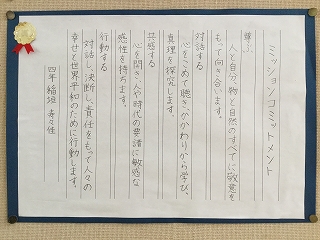 ミッションコミットメント
尊ぶ
人と自分、物と自然のすべてに敬意を
もって向き合います。
対話する
心をこめて聴き、かかわりから学び、
真理を探究します。
共感する
心を開き、人や時代の要請に敏感な
感性を持ちます。
行動する
対話し、決断し、責任をもって人々の
幸せと世界平和のために行動します。
四年 稲垣